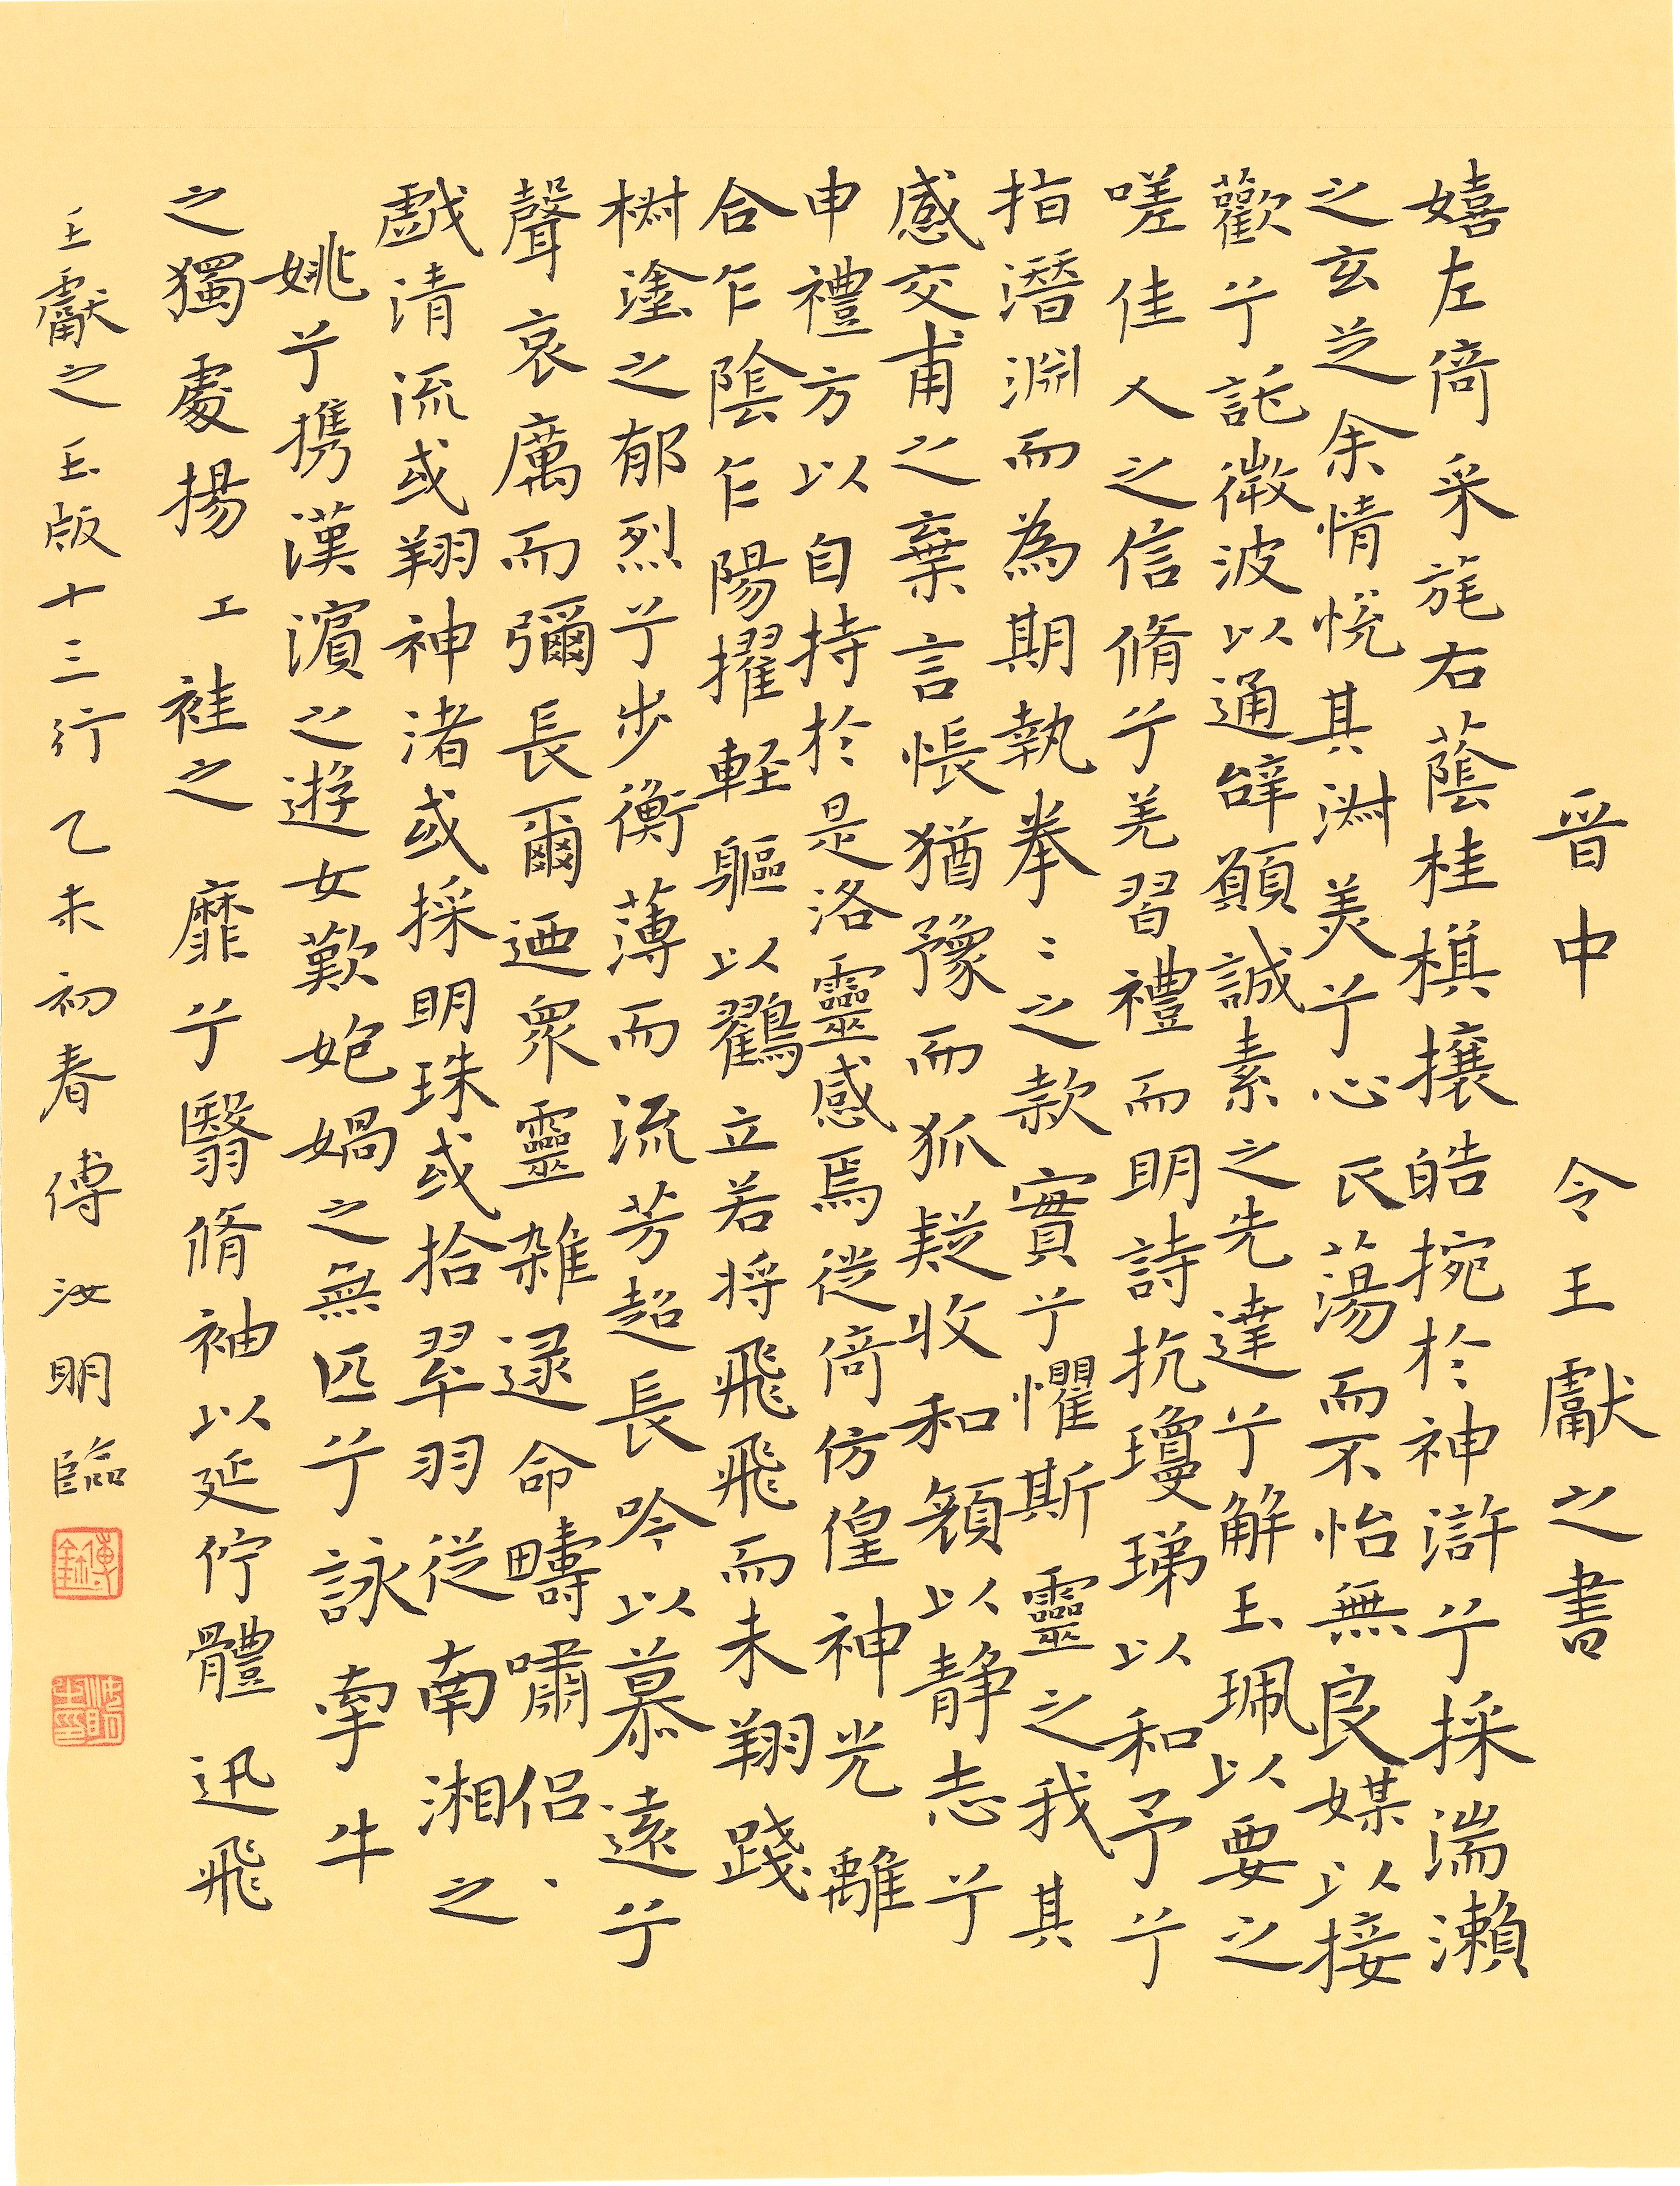 晋中 令王獻之書
嬉左倚采旄右蔭桂椇攘皓捥於神滸兮採湍瀨
之玄芝余情悅其淑美兮心 㞋蕩而不怡無良媒以接
歡兮託微波以通辝願誠素之先達兮解玉珮以要之
嗟佳人之信脩兮羌習禮而明詩抗瓊珶以和予兮
指潛淵而為期執拳〻之款實兮懼斯靈之我其
感交甫之棄言悵猶豫而狐疑收和顏以静志兮
申禮方以自持於是洛靈感焉從倚仿偟神光離
合乍陰乍陽擢輕軀以鶴立若將飛飛而未翔踐
樹塗之郁烈兮步衡薄而流芳超長吟以慕遠兮
聲哀厲而彌長爾迺衆靈雜遝命疇嘯侶、
戲清流或翔神渚或採明珠或拾翠羽從南湘之
姚兮携漢濱之遊女歎妑媧之無匹兮詠牽牛
之獨處揚 工 袿之 靡兮翳脩袖以延佇體迅飛
王獻之玉版十三行 乙未初春傅汝明臨